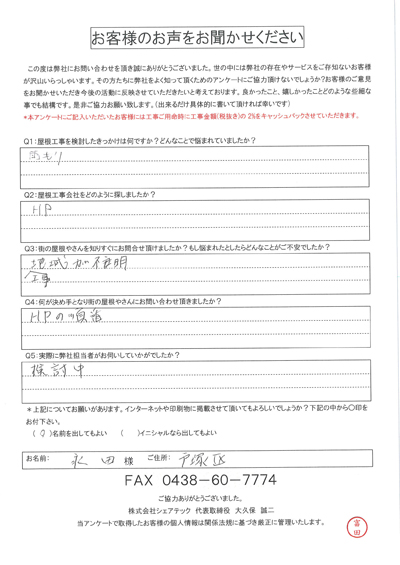 お客様のお声をお聞かせください
この度は弊社にお問い合わせを頂き誠にありがとうございました。世の中には弊社の存在やサービスをご存知ないお客様
が沢山いらっしゃいます。その方たちに弊社をよく知って頂くためのアンケートにご協力頂けないでしょうか?お客様のご意見
をお聞かせいただき今後の活動に反映させていただきたいと考えております。良かったこと、嬉しかったことどのような些細な
事でも結構です。是非ご協力お願い致します。(出来るだけ具体的に書いて頂ければ幸いです)
*本アンケートにご記入いただいたお客様には工事ご用命時に工事金額(税抜き)の2%をキャッシュバックさせていただきます。
Q1:屋根工事を検討したきっかけは何ですか?どんなことで悩まれていましたか?
雨もり
Q2:屋根工事会社をどのように探しましたか?
HP
Q3:街の屋根やさんを知りすぐにお問合せ頂けましたか?もし悩まれたとしたらどんなことがご不安でしたか?
地域が不明
工事
Q4:何が決め手となり街の屋根やさんにお問い合わせ頂きましたか?
HPの順番
Q5:実際に弊社担当者がお伺いしていかがでしたか?
検討中
*上記についてお願いがあります。インターネットや印刷物に掲載させて頂いてもよろしいでしょうか?下記の中から〇印を
お付下さい。
(〇)名前を出してもよい ( )イニシャルなら出してもよい
お名前: 永田 様 ご住所: 戸塚区
FAX 0438-60-7774
ご協力ありがとうございました。
株式会社シェアテック 代表取締役 大久保 誠二
当アンケートで取得したお客様の個人情報は関係法規に基づき厳正に管理いたします。
富田